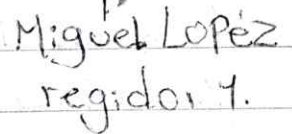 Miguel Lopéz
regidor 1.